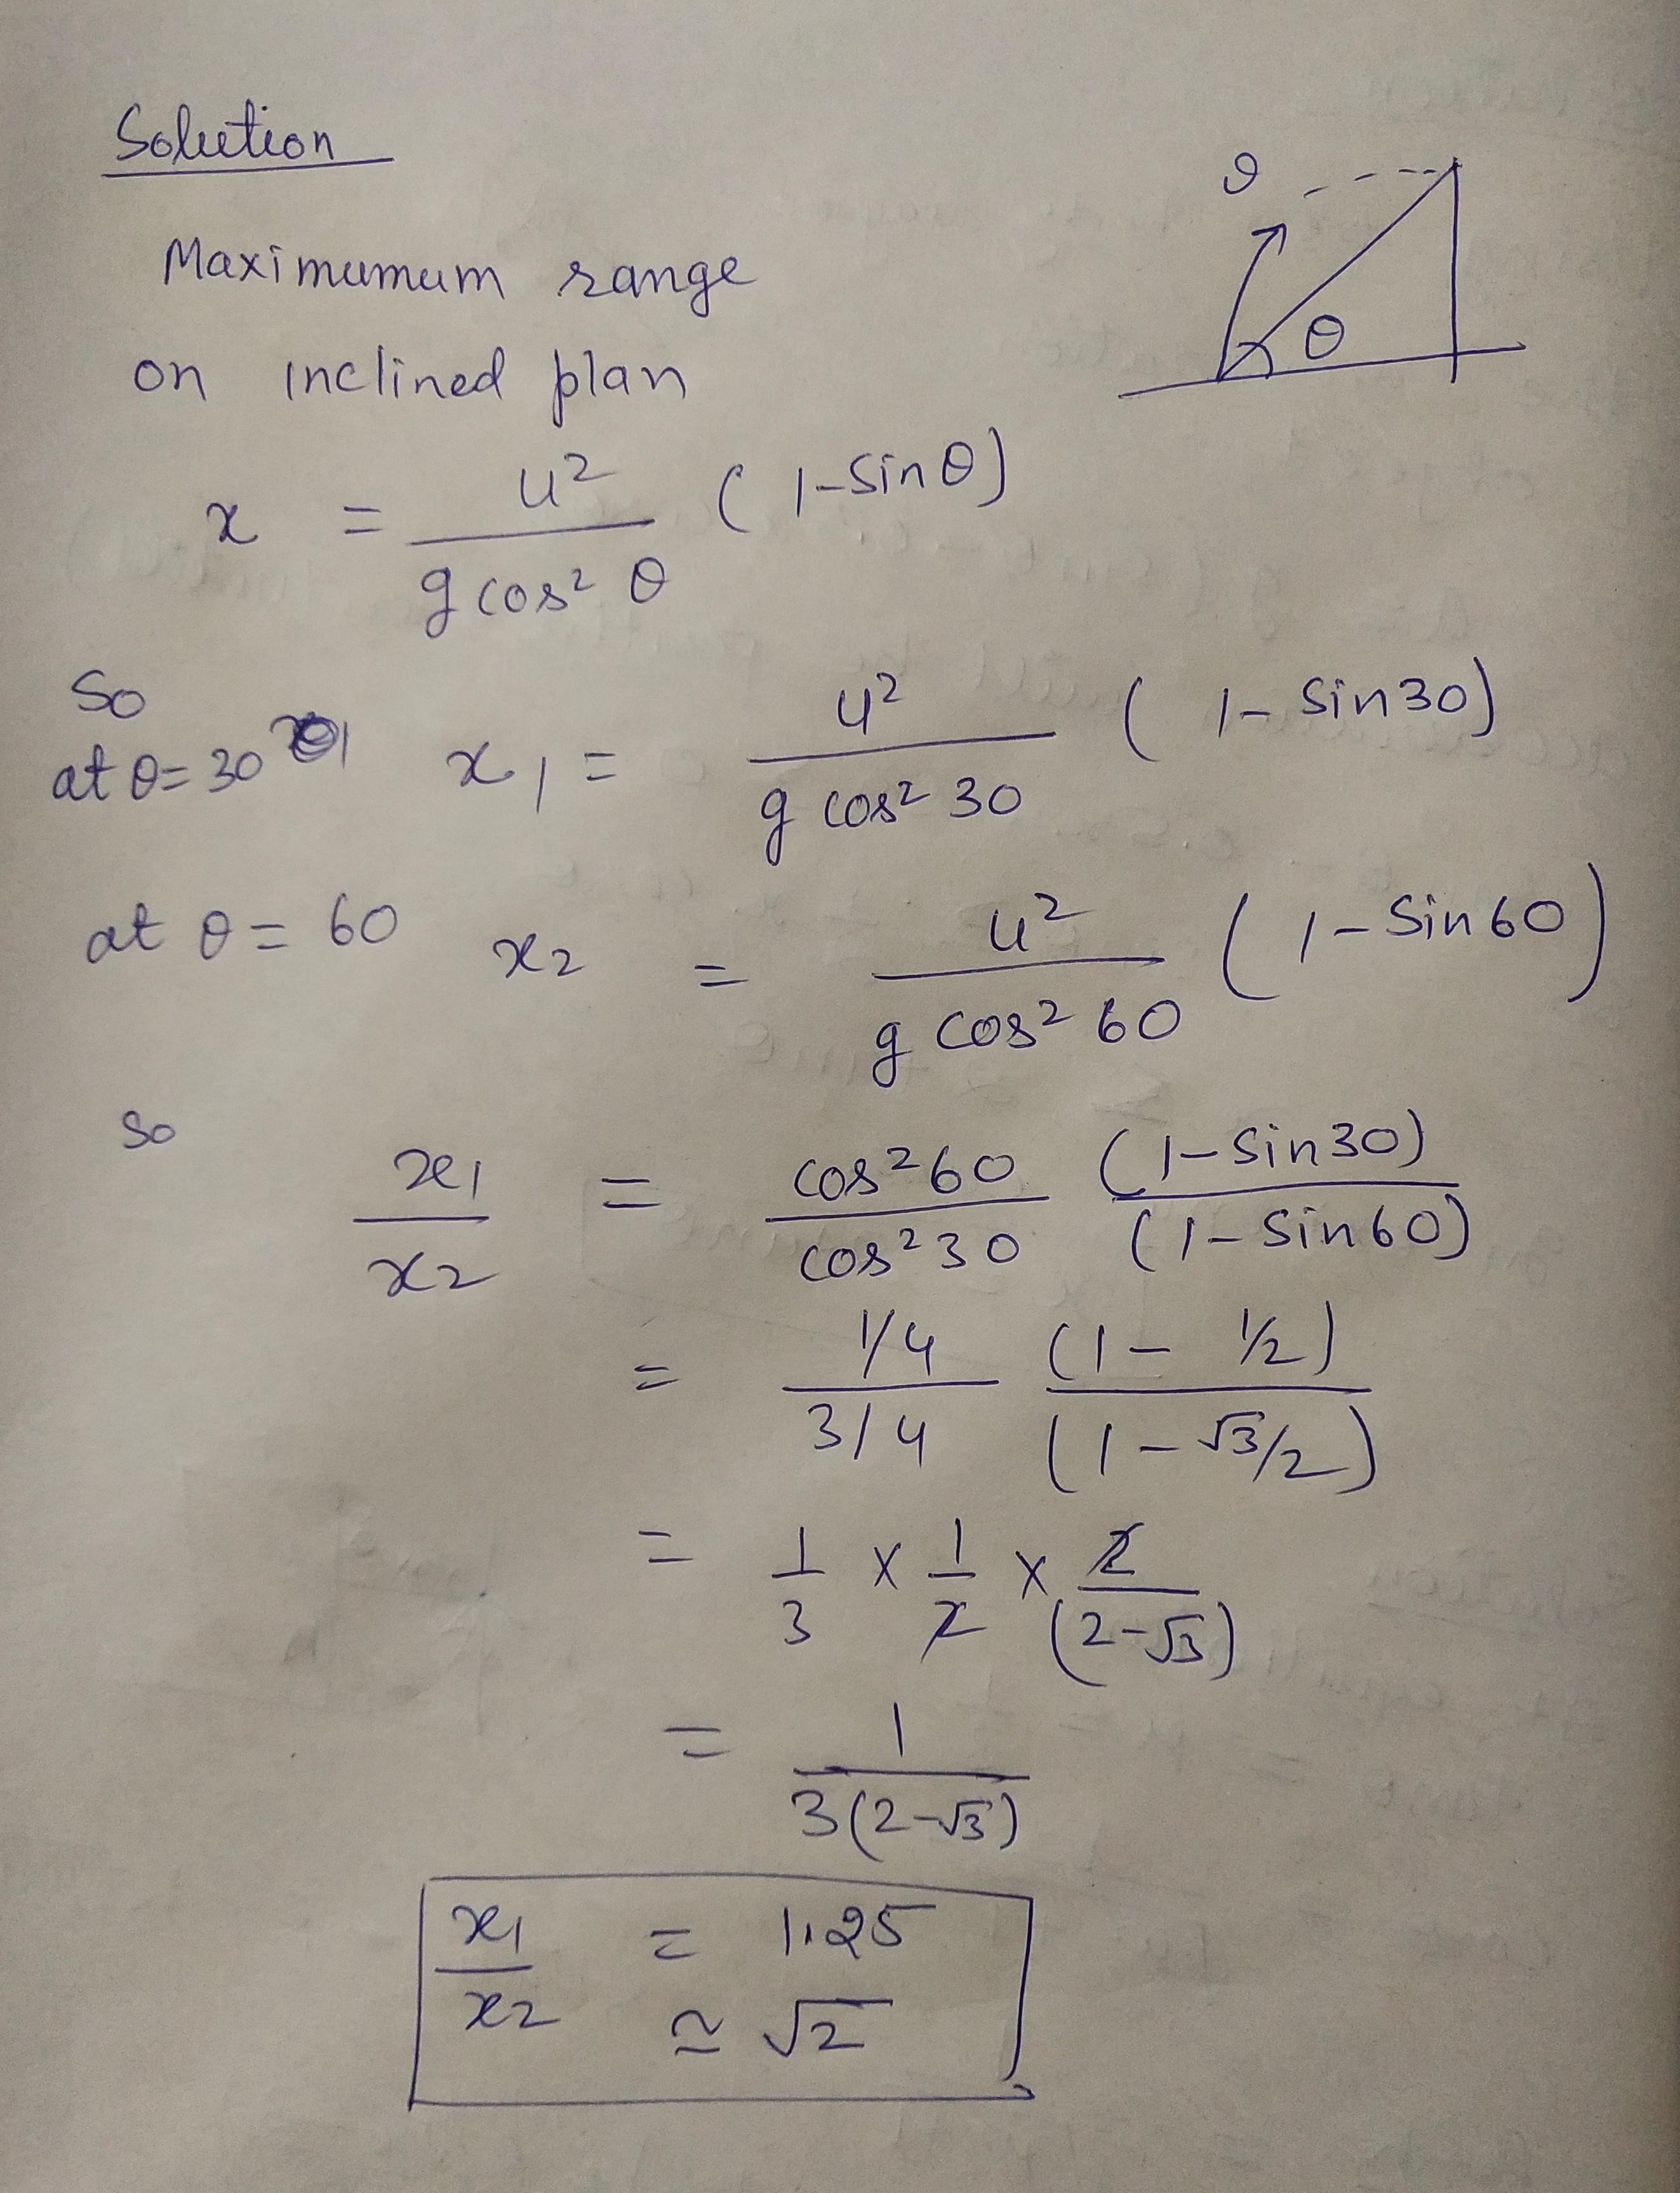 Solution
Maximumum range
on inclined plan
ϑ
θ
x = u² / g cos² θ ( 1 - Sin θ )
So
at θ = 30 x₁ = u² / g cos² 30 ( 1 - Sin 30 )
at θ = 60 x₂ = u² / g cos² 60 ( 1 - Sin 60 )
so x₁ / x₂ = cos² 60 / cos² 30 ( 1 - Sin 30 ) / ( 1 - Sin 60 )
= 1/4 / 3/4 ( 1 - 1/2 ) / ( 1 - √3/2 )
= 1/3 × 1/2 × 2/(2-√3)
= 1 / 3(2-√3)
x₁ / x₂ = 1.25
≃ √2